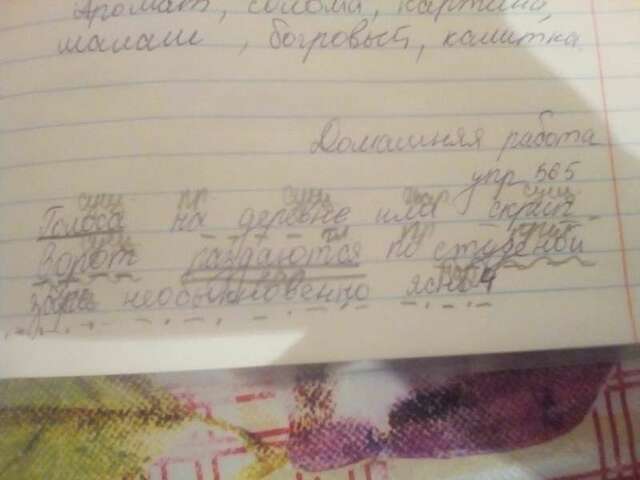 Аромат, солома, картина,
шалаш, богровый, калитка.
Домашняя работа
упр 565
сущ пр сущ сущ
Голоса на деревне или скрип
сущ гл пр
ворот раздаются по студеной
заре необыкновенно ясно 4